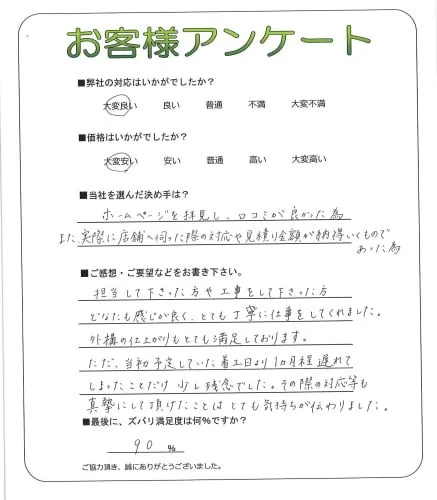 お客様アンケート
■弊社の対応はいかがでしたか？
大変良い 良い 普通 不満 大変不満
■価格はいかがでしたか？
大変安い 安い 普通 高い 大変高い
■当社を選んだ決め手は？
ホームページを拝見し、口コミが良かった為
また、実際に店舗へ伺った際の対応や見積り金額が納得いくもので
あった為
■ご感想・ご要望などをお書き下さい。
担当して下さった方や工事をして下さった方
どなたも感じが良く、とても丁寧に仕事をしてくれました。
外構の仕上がりもとても満足しております。
ただ、当初予定していた着工日より1ヵ月程遅れて
しまったことだけ少し残念でした。その際の対応等も
真摯にして頂けたことはとても気持ちが伝わりました。
■最後に、ズバリ満足度は何％ですか？
90 %
ご協力頂き、誠にありがとうございました。